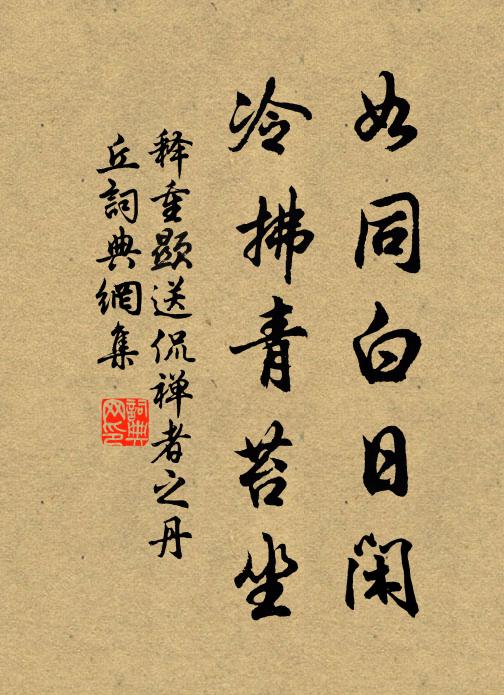 如同白日闲
冷拂青苔坐
释重顯送侃禅者之丹
丘詞典網集
詞典
网印